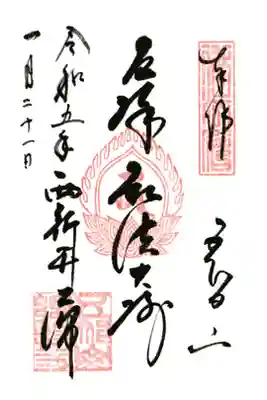 奉拝
五智山
厄除弘法大師
令和五年
一月二十一日
西新井大師